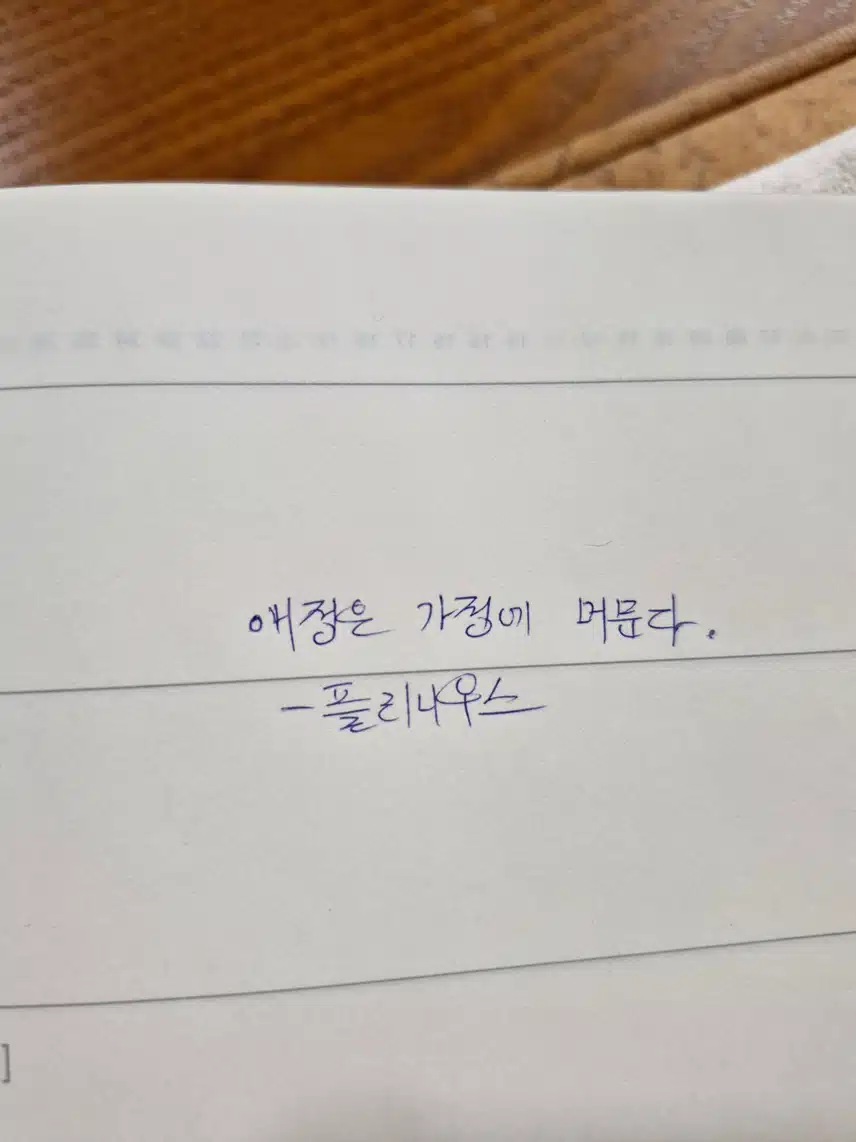 애정은 가정에 머문다.
-플리니우스
]